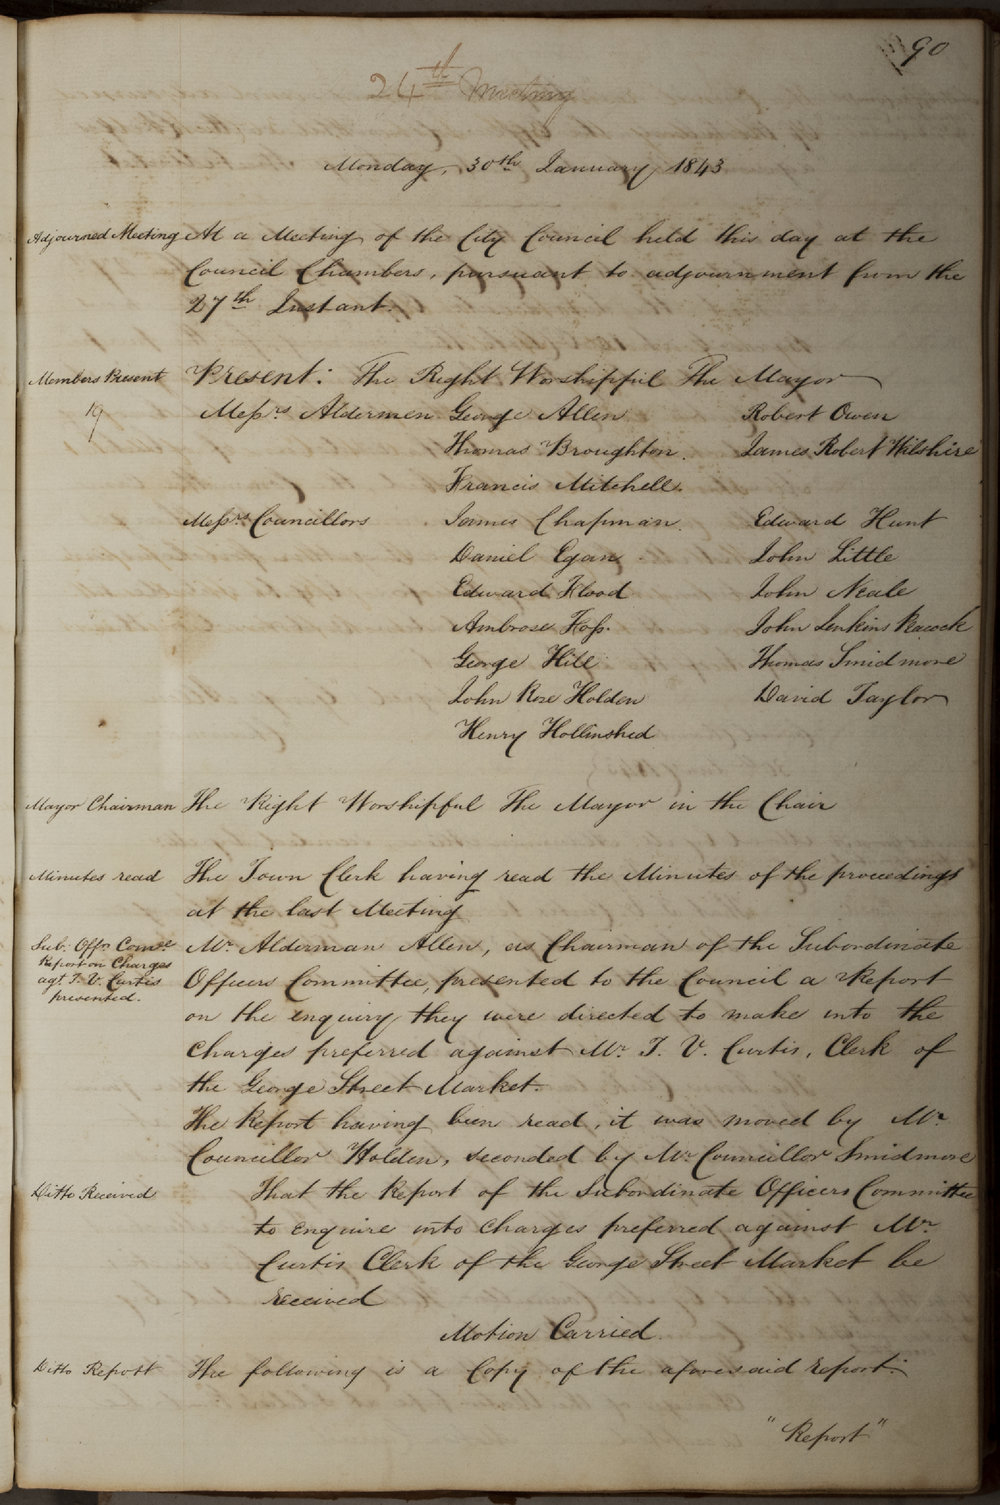 90
24th Meeting
Monday, 30th January 1843
Adjourned Meeting At a Meeting of the City Council held this day at the
Council Chambers, pursuant to adjournment from the
27th Instant.
Members Present Present: The Right Worshipful The Mayor
19 Messrs Aldermen George Allen Robert Owen
Thomas Broughton. James Robert Wilshire
Francis Mitchell.
Messrs Councillors James Chapman. Edward Hunt
Daniel Egan John Little
Edward Flood John Neale
Ambrose Foss. John Jenkins Peacock
George Hill Thomas Smidmore
John Rose Holden David Taylor
Henry Hollinshed
Mayor Chairman The Right Worshipful The Mayor in the Chair
Minutes read The Town Clerk having read the Minutes of the proceedings
at the last Meeting
Sub. Offrs Comee Mr Alderman Allen, as Chairman of the Subordinate
Report on Charges
agt T. V. Curtis Officers Committee, presented to the Council a Report
presented.
on the enquiry they were directed to make into the
charges preferred against Mr T. V. Curtis, Clerk of
the George Street Market.
The Report having been read, it was moved by Mr
Councillor Holden, seconded by Mr Councillor Smidmore
Ditto Received That the Report of the Subordinate Officers Committee
to enquire into charges preferred against Mr
Curtis Clerk of the George Street Market be
received
Motion Carried.
Ditto Report The following is a Copy of the aforesaid report:
"Report"